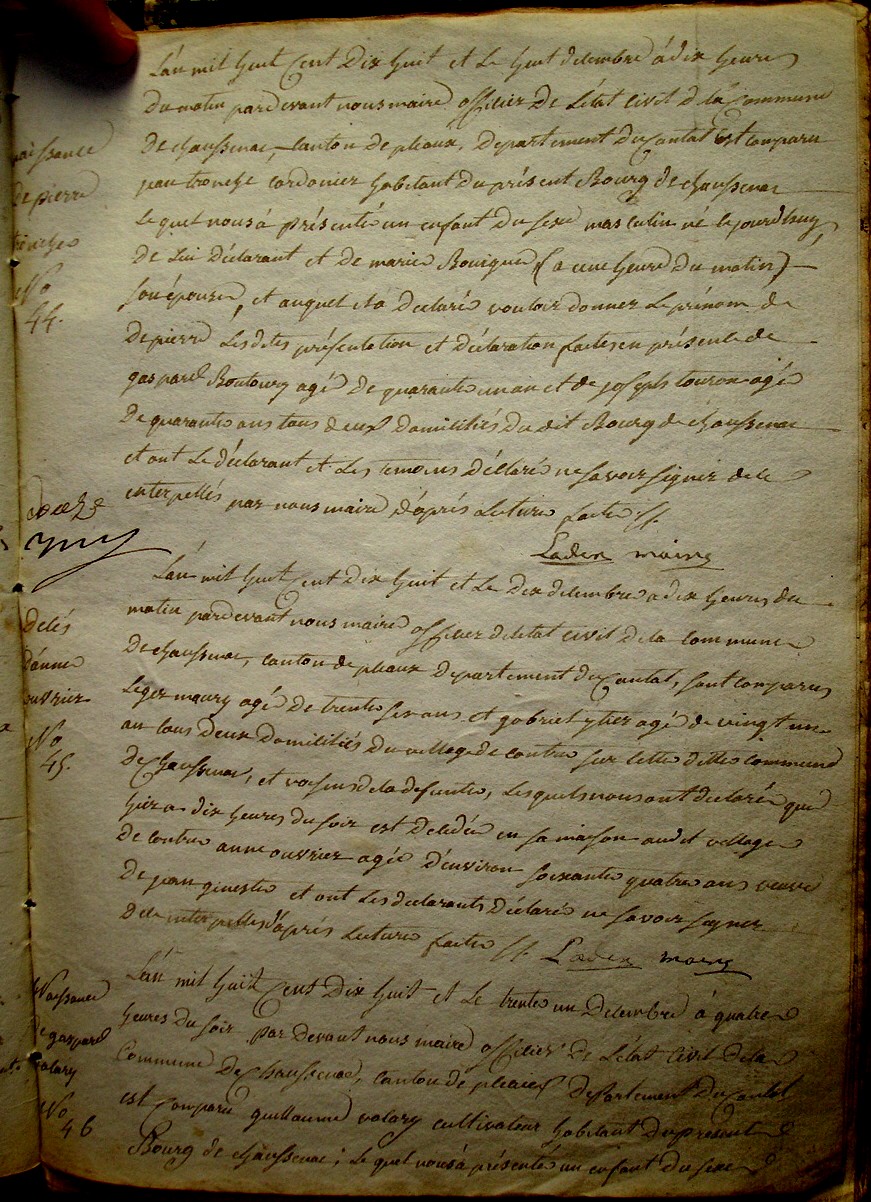 L'an mil huit Cent Dix huit et Le huit decembre à dix heures
Du matin pardevant nous maire officier De L'état civil d la Commune
De chaussenac, canton de pleaux, Departement du cantal est comparu
jean troneche cordonier habitant Du présent Bourg de chaussenac
Le quel nous à présenté un enfant Du sexe masculin né Le jourdhuy,
De Lui Déclarant et De marie Bourgue (a une heure Du matin)
son épouse, et auquel il à Declaré vouloir donner Le prénom de
De pierre Les dites présentation et Déclaration faites en présence de
gaspard Boutoury agé De quarante un an et de joseph touron agé
De quarante ans tous deux Domiciliés Du dit Bourg de chaussenac
et ont Le déclarant et Les temoins Déclaré ne savoir signer de ce
interpellés par nous maire D'après Lecture faite //.
naissance
de pierre
troneche
No
44.
Lader maire
L'an mil huit Cent Dix huit et Le Dix decembre a dix heures du
matin pardevant nous maire officier de letat civil de la commune
De chaussenac, canton de pleaux Departement du Cantal, sont comparus
Leger maury agé De trente six ans et gabriel ytier agé de vingt un
an tous Deux Domiciliés Du village de contre sur cette ditte commune
De Chaussenac, et voisins de la defunte, Lesquels nous ont declaré que
hier a dix heures Du soir est decedée en sa maison audit village
De contre anne ouvrier agée D'environ soixante quatre ans veuve
De jean gineste et ont Les declarants Déclaré ne savoir signer
De ce interpellés d'après Lecture faite //. Lader maire
Décés
D'anne
ouvrier
No
45.
L'an mil huit Cent Dix huit et Le trente un Decembre à quatre
heures Du soir par Devant nous maire officier De L'état Civil de la
Commune De Chaussenac, canton de pleaux departement du Cantal
est Comparu guillaume valary cultivateur habitant Du present
Bourg de chaussenac; Le quel nous à présenté un enfant Du sexe
Naissance
de gaspard
valary
No
46